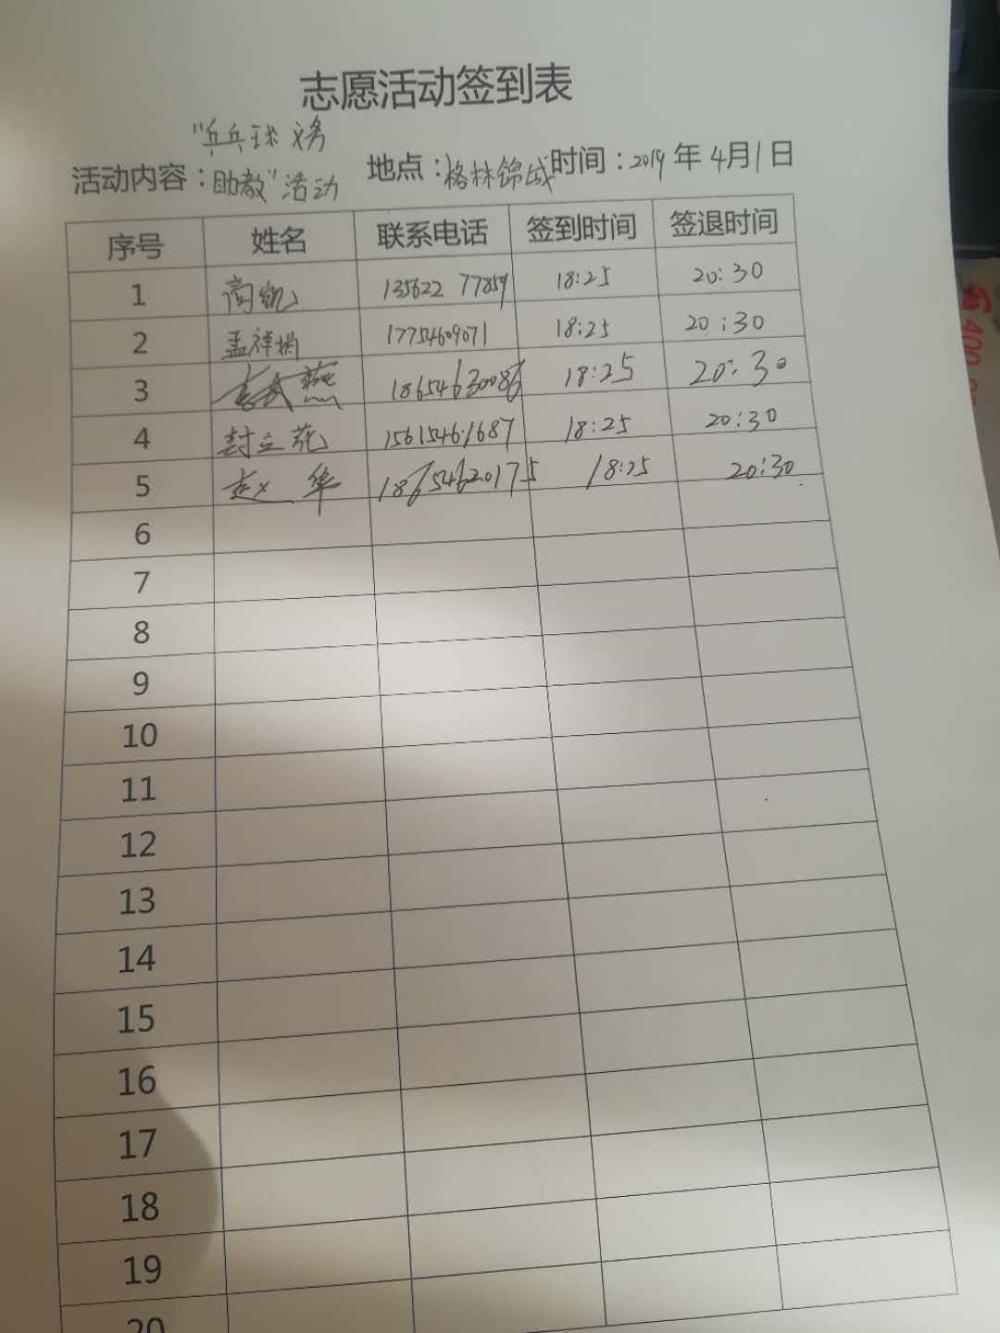 志愿活动签到表
"乒乓球 义务
活动内容：助教"活动 地点：格林锦城 时间：2019年4月1日
序号 姓名 联系电话 签到时间 签退时间
1 商凯 13562277859 18:25 20:30
2 孟祥娟 17754609071 18:25 20:30
3 燕 18654630086 18:25 20:30
4 封立苑 15615461687 18:25 20:30
5 赵华 18654620175 18:25 20:30
6
7
8
9
10
11
12
13
14
15
16
17
18
19
20